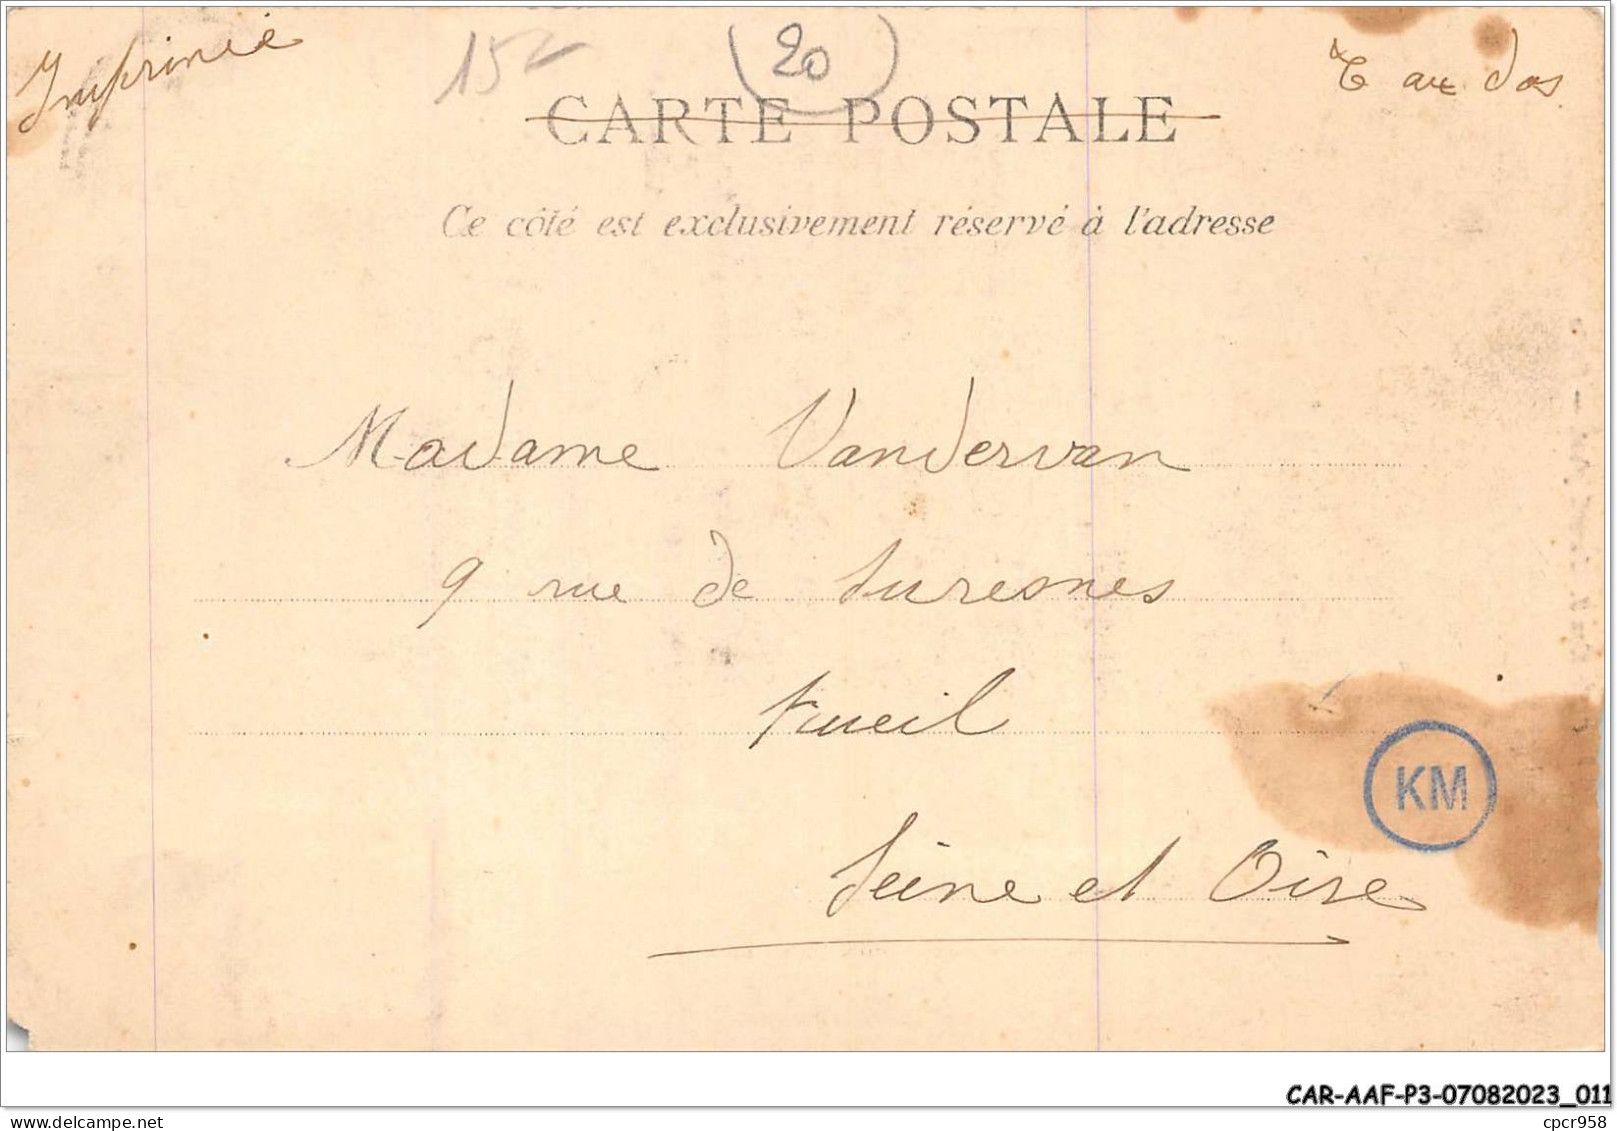 Imprimée
15
20
T au dos
CARTE POSTALE
Ce côté est exclusivement réservé à l'adresse
Madame Vandervan
9 rue de Suresnes
Rueil
KM
Seine et Oise
CAR-AAF-P3-07082023_011
cpcr958